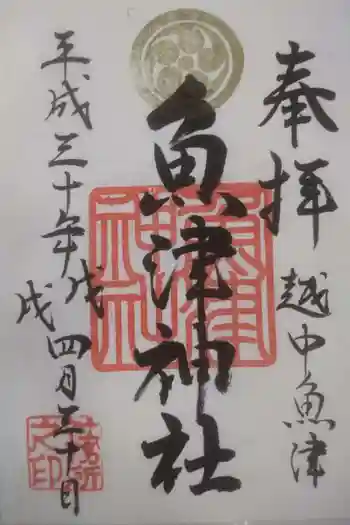 奉拝
越中魚津
魚津神社
平成三十年戊戌四月三十日
魚津神社